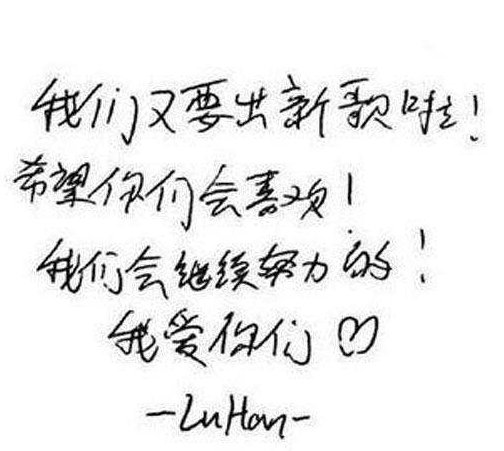 我们又要出新歌啦!
希望你们会喜欢!
我们会继续努力的!
我爱你们♡
-LuHan-